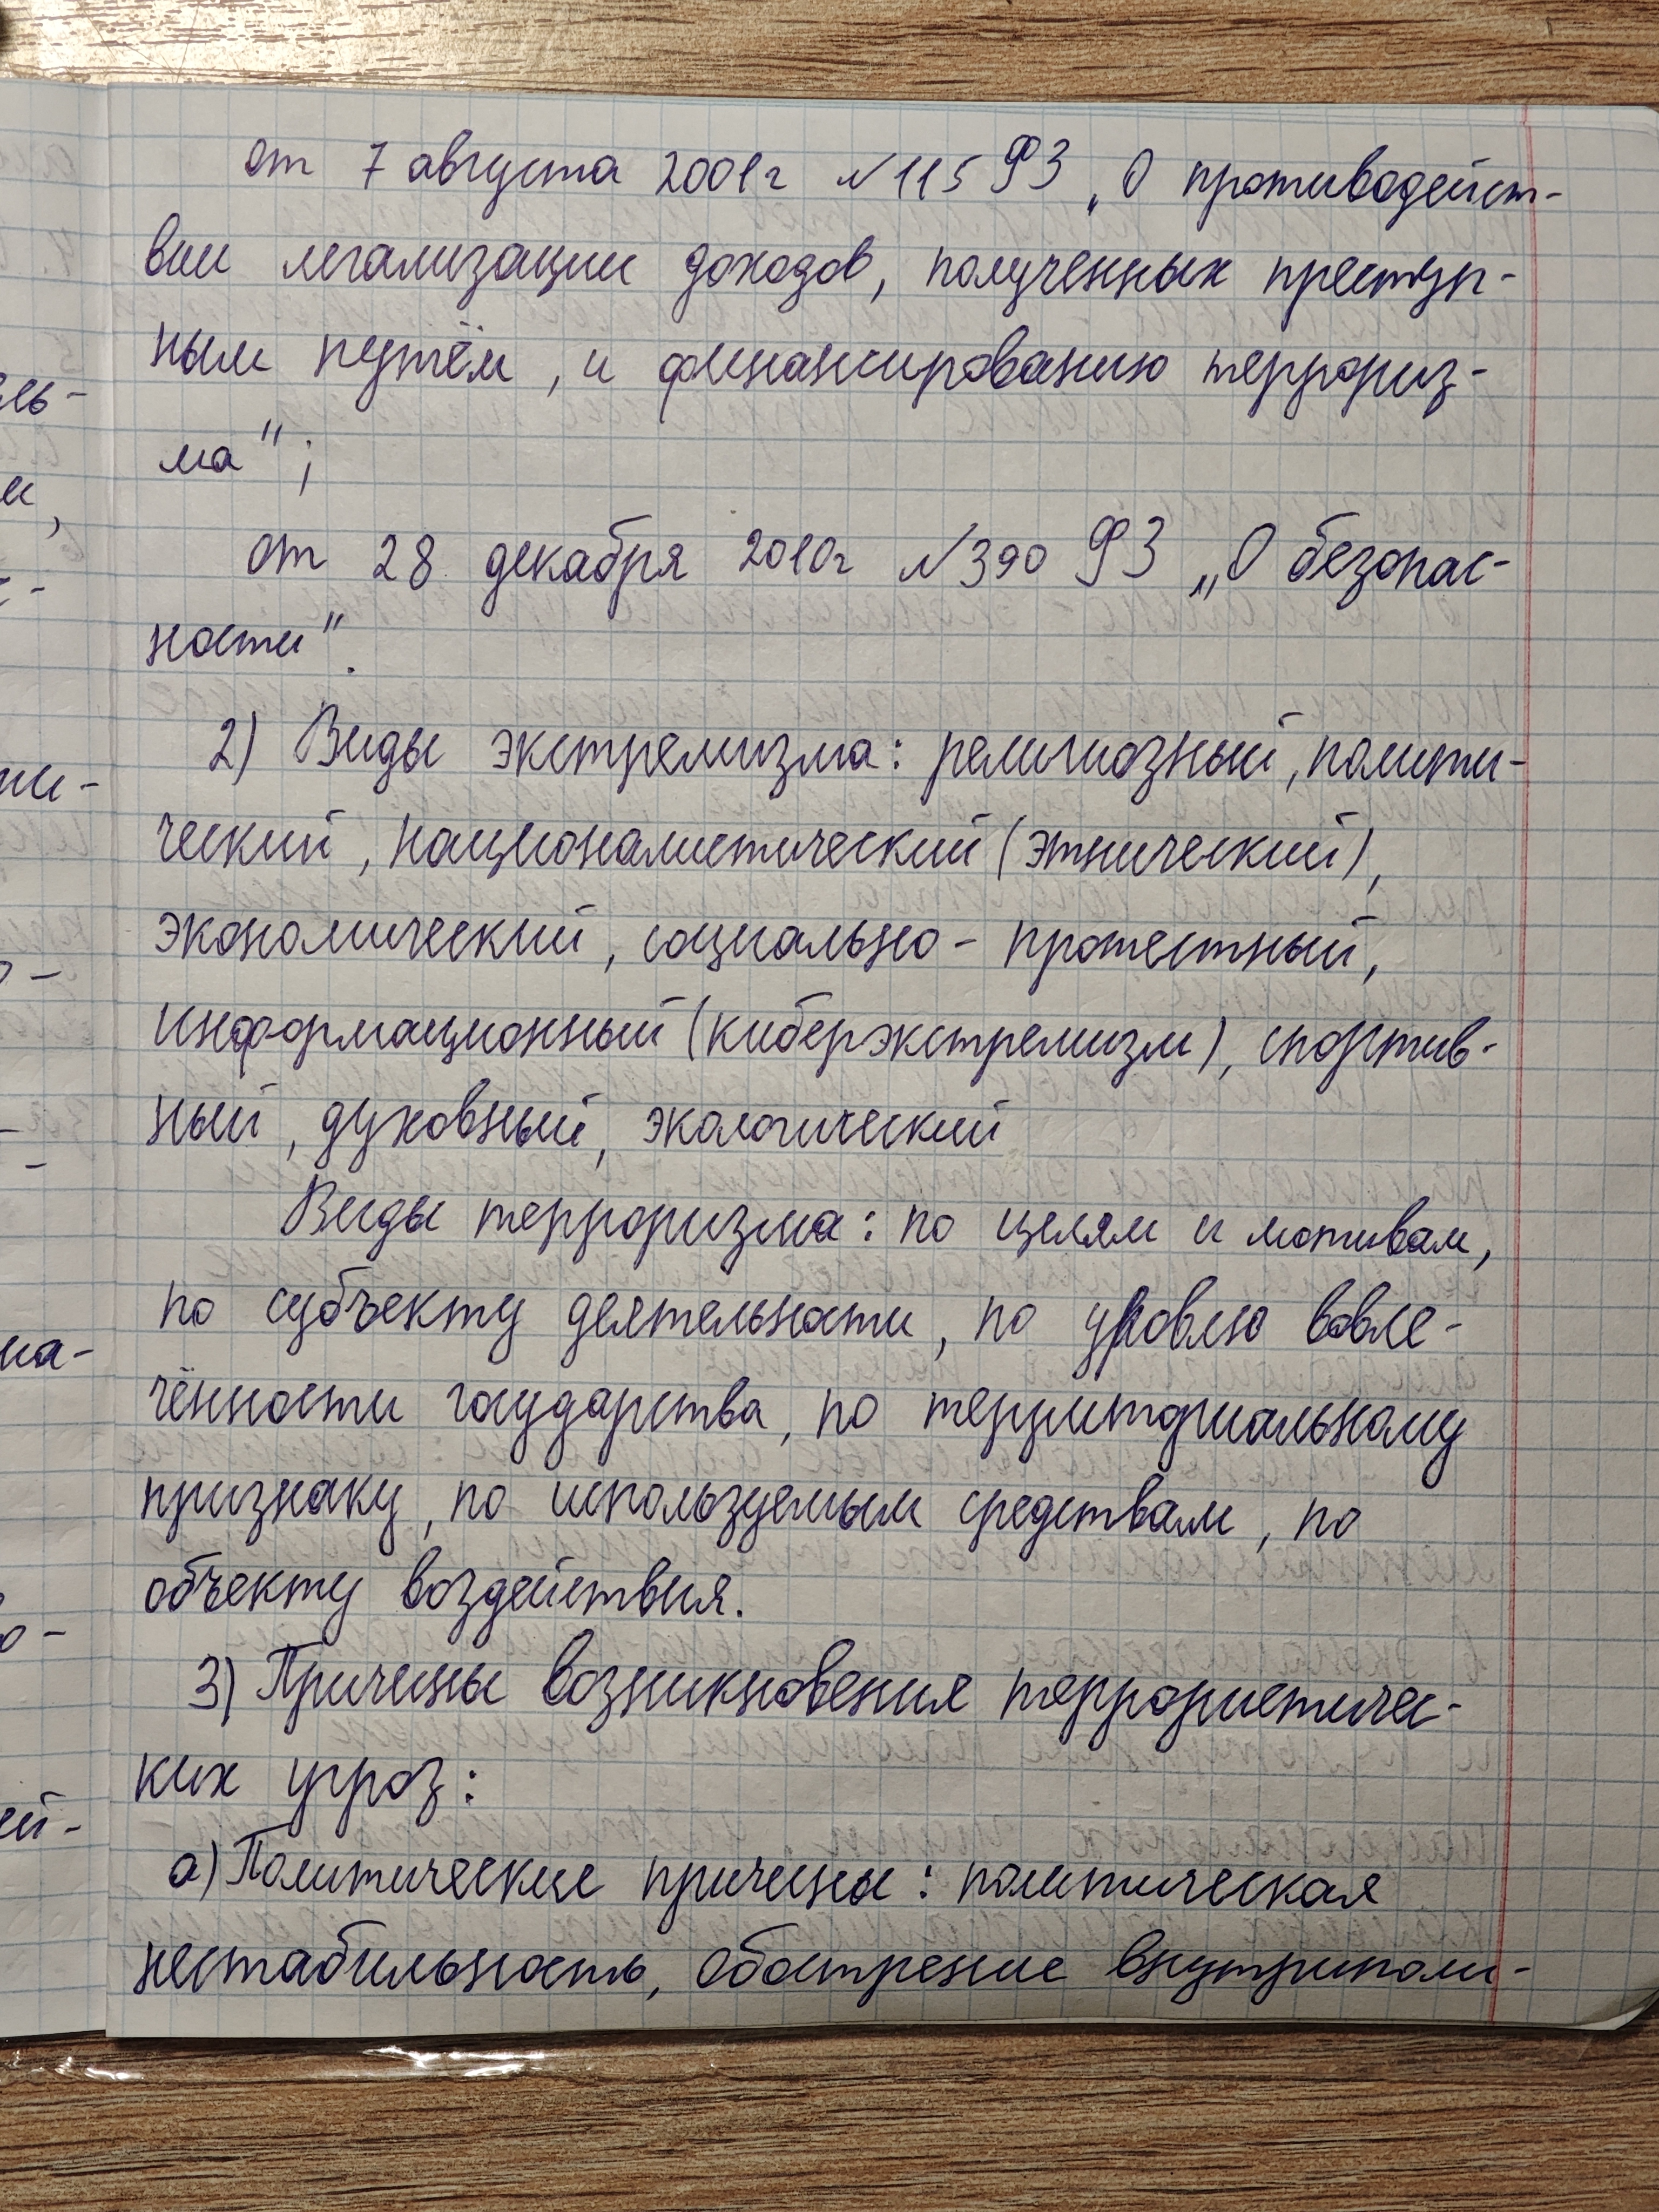 от 7 августа 2001г №115 ФЗ „О противодейст-
вии легализации доходов, полученных преступ-
ным путём, и финансированию террориз-
ма";
от 28 декабря 2010г №390 ФЗ „О безопас-
ности".
2) Виды экстремизма: религиозный, полити-
ческий, националистический (этнический),
экономический, социально - протестный,
информационный (киберэкстремизм), спортив-
ный, духовный, экологический
Виды терроризма: по целям и мотивам,
по субъекту деятельности, по уровлю вовле-
чённости государства, по территориальному
признаку, по используемым средствам, по
объекту воздействия.
3) Причины возникновения террористичес-
ких угроз:
а) Политические причины: политическая
нестабильность, обострение внутриполи-